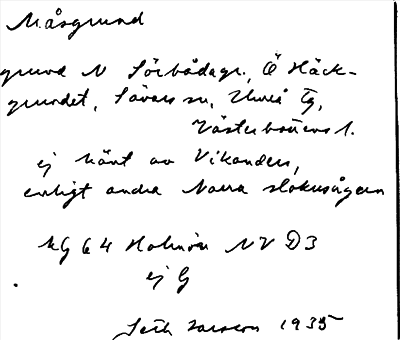 Måsgrund
grund N Sörbådagr., Ö Häck-
grundet, Sävars sn, Umeå tg,
Västerbottens l.
ej känt av Vikanders,
enligt andra Norra
KG 64 Holmön NV D3
ej G
Seth Larsson 1935